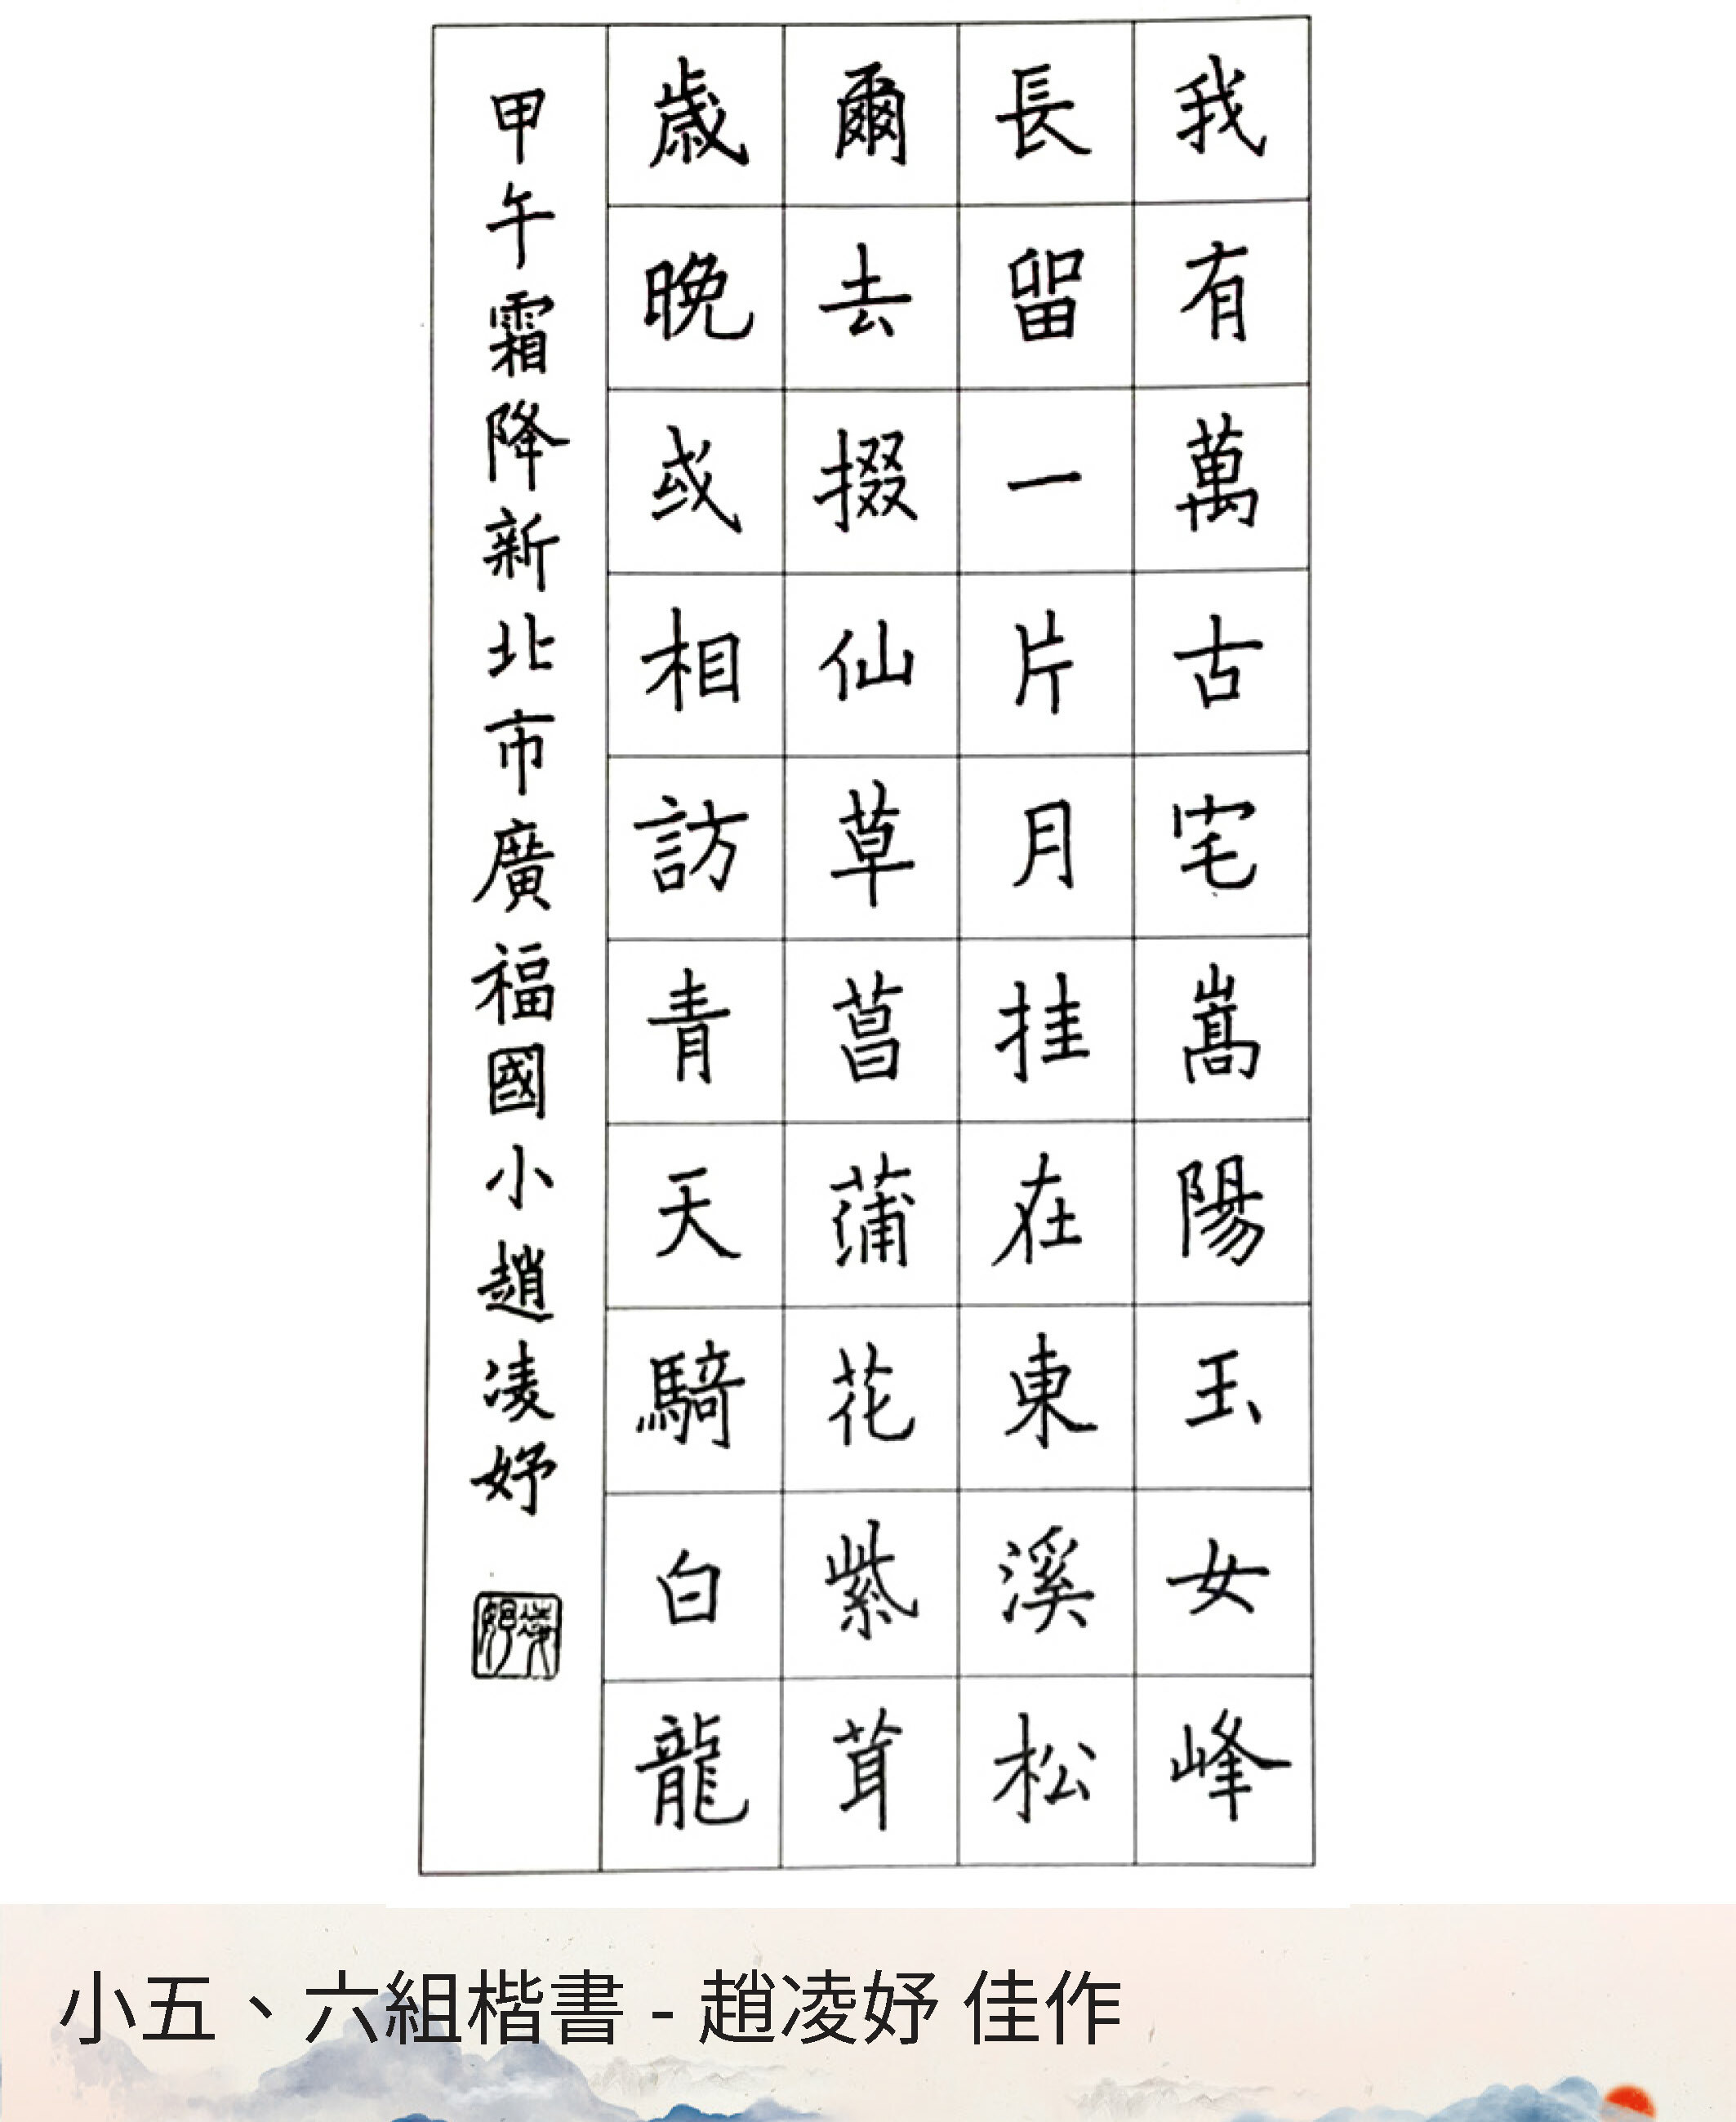 我有萬古宅嵩陽玉女峰
長留一片月挂在東溪松
爾去掇仙草菖蒲花紫茸
歲晚或相訪青天騎白龍
甲午霜降新北市廣福國小趙凌妤
凌妤
小五、六組楷書 - 趙凌妤 佳作